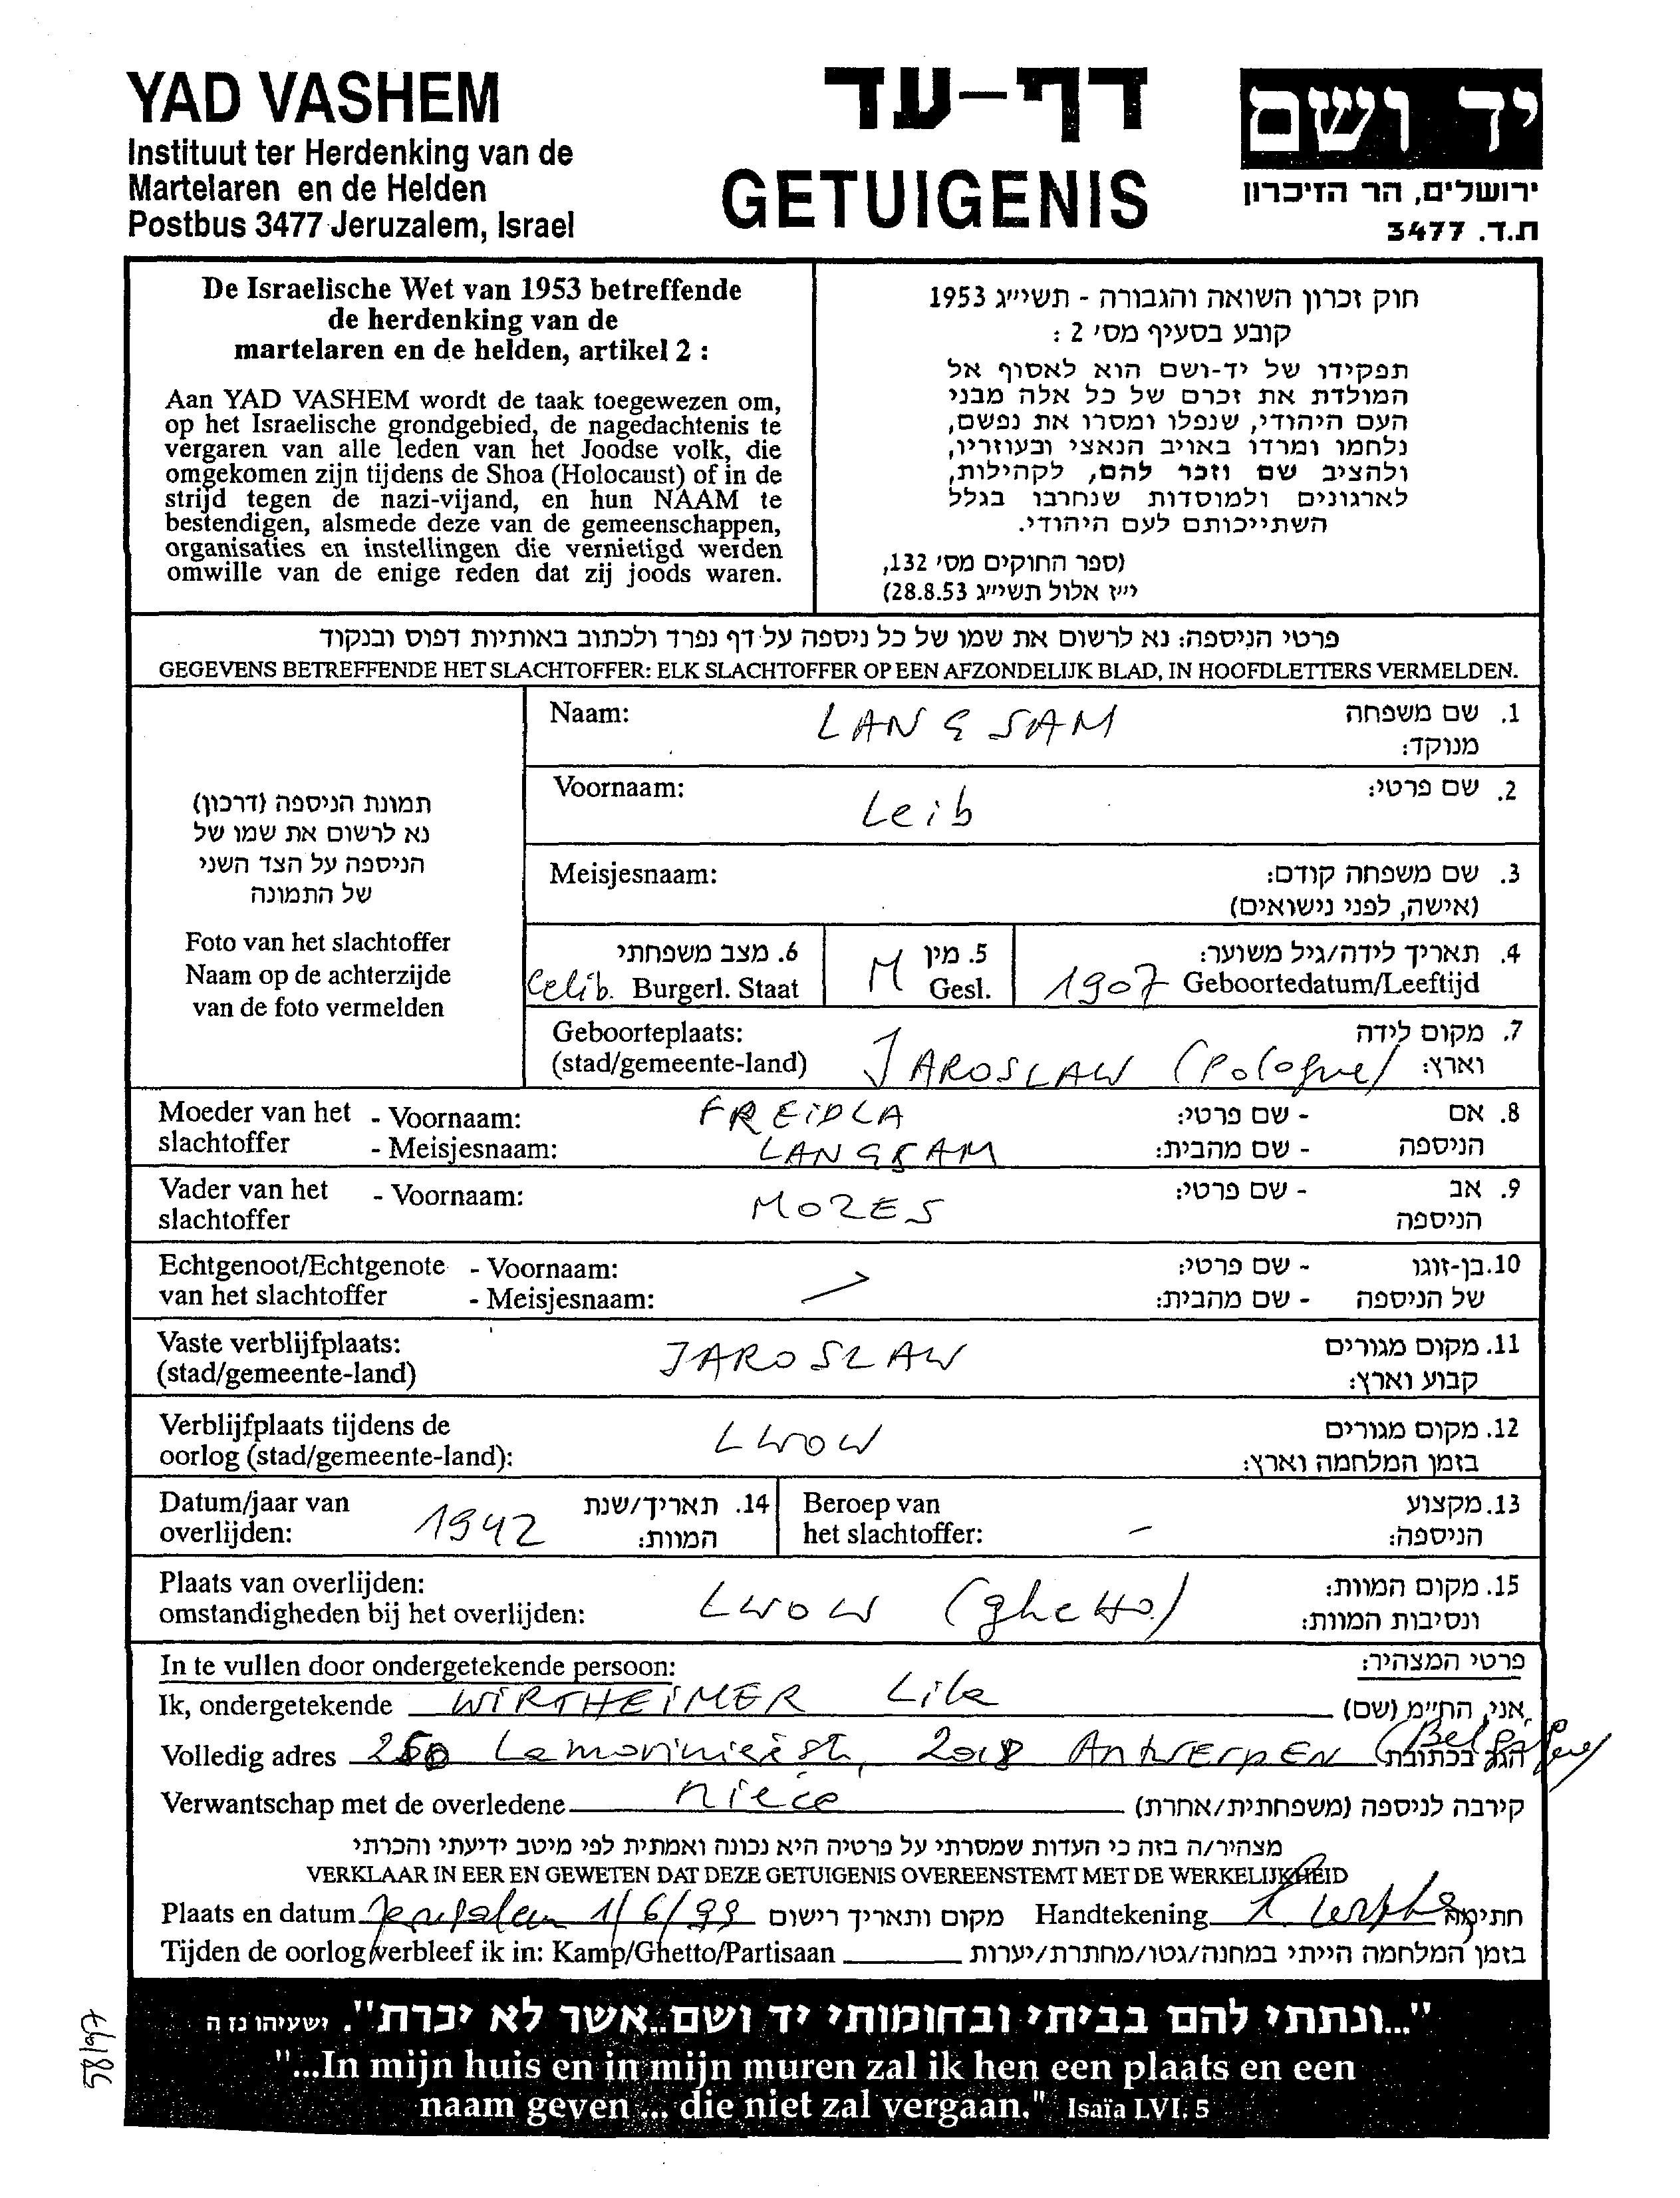 YAD VASHEM
Instituut ter Herdenking van de
Martelaren en de Helden
Postbus 3477 Jeruzalem, Israel
דף-עד
GETUIGENIS
יד ושם
ירושלים, הר הזיכרון
ת.ד. 3477
De Israelische Wet van 1953 betreffende
de herdenking van de
martelaren en de helden, artikel 2 :
Aan YAD VASHEM wordt de taak toegewezen om,
op het Israelische grondgebied, de nagedachtenis te
vergaren van alle leden van het Joodse volk, die
omgekomen zijn tijdens de Shoa (Holocaust) of in de
strijd tegen de nazi-vijand, en hun NAAM te
bestendigen, alsmede deze van de gemeenschappen,
organisaties en instellingen die vernietigd werden
omwille van de enige reden dat zij joods waren.
חוק זכרון השואה והגבורה - תשי״ג 1953
קובע בסעיף מס׳ 2 :
תפקידו של יד-ושם הוא לאסוף אל
המולדת את זכרם של כל אלה מבני
העם היהודי, שנפלו ומסרו את נפשם,
נלחמו ומרדו באויב הנאצי ובעוזריו,
ולהציב שם וזכר להם, לקהילות,
לארגונים ולמוסדות שנחרבו בגלל
השתייכותם לעם היהודי.
(ספר החוקים מס׳ 132,
י״ז אלול תשי״ג 28.8.53)
פרטי הניספה: נא לרשום את שמו של כל ניספה על דף נפרד ולכתוב באותיות דפוס ובנקוד
GEGEVENS BETREFFENDE HET SLACHTOFFER: ELK SLACHTOFFER OP EEN AFZONDELIJK BLAD, IN HOOFDLETTERS VERMELDEN.
תמונת הניספה (דרכון)
נא לרשום את שמו של
הניספה על הצד השני
של התמונה
Foto van het slachtoffer
Naam op de achterzijde
van de foto vermelden
Naam: LANGSAM 1. שם משפחה
מנוקד:
Voornaam: Leib 2. שם פרטי:
Meisjesnaam: 3. שם משפחה קודם:
(אישה, לפני נישואים)
6. מצב משפחתי 5. מין 4. תאריך לידה/גיל משוער:
Celib. Burgerl. Staat M Gesl. 1907 Geboortedatum/Leeftijd
Geboorteplaats: 7. מקום לידה
(stad/gemeente-land) JAROSLAW (Pologne) וארץ:
Moeder van het - Voornaam: FREiDLA - שם פרטי: 8. אם
slachtoffer - Meisjesnaam: LANGSAM - שם מהבית: הניספה
Vader van het - Voornaam: MOZES - שם פרטי: 9. אב
slachtoffer הניספה
Echtgenoot/Echtgenote - Voornaam: - שם פרטי: 10. בן-זוגו
van het slachtoffer - Meisjesnaam: - שם מהבית: של הניספה
Vaste verblijfplaats: JAROSLAW 11. מקום מגורים
(stad/gemeente-land) קבוע וארץ:
Verblijfplaats tijdens de LWOW 12. מקום מגורים
oorlog (stad/gemeente-land): בזמן המלחמה וארץ:
Datum/jaar van 14. תאריך/שנת Beroep van 13. מקצוע
overlijden: 1942 המוות: het slachtoffer: - הניספה:
Plaats van overlijden: 15. מקום המוות:
omstandigheden bij het overlijden: LWOW (ghetto) ונסיבות המוות:
In te vullen door ondergetekende persoon: פרטי המצהיר:
Ik, ondergetekende WiRTHEiMER Lila אני, החי״מ (שם)
Volledig adres 250 Lamorinièrestr, 2018 AntwERpEN (Belgique) הגר בכתובת
Verwantschap met de overledene nièce קירבה לניספה (משפחתית/אחרת)
מצהיר/ה בזה כי העדות שמסרתי על פרטיה היא נכונה ואמתית לפי מיטב ידיעתי והכרתי
VERKLAAR IN EER EN GEWETEN DAT DEZE GETUIGENIS OVEREENSTEMT MET DE WERKELIJKHEID
Plaats en datum Jerusalem 1/6/99 מקום ותאריך רישום Handtekening חתימה
Tijden de oorlog verbleef ik in: Kamp/Ghetto/Partisaan בזמן המלחמה הייתי במחנה/גטו/מחתרת/יערות
"...ונתתי להם בביתי ובחומותי יד ושם..אשר לא יכרת". ישעיהו נז ה
"...In mijn huis en in mijn muren zal ik hen een plaats en een
naam geven ... die niet zal vergaan." Isaïa LVI. 5